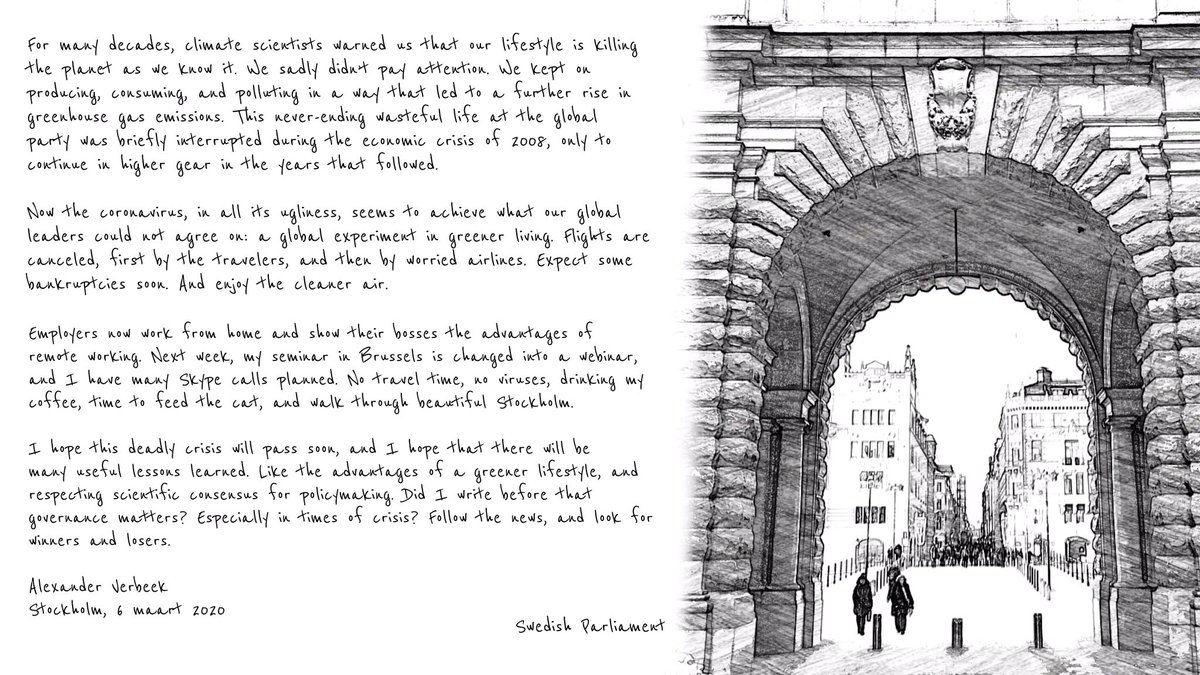 For many decades, climate scientists warned us that our lifestyle is killing
the planet as we know it. We sadly didn't pay attention. We kept on
producing, consuming, and polluting in a way that led to a further rise in
greenhouse gas emissions. This never-ending wasteful life at the global
party was briefly interrupted during the economic crisis of 2008, only to
continue in higher gear in the years that followed.
Now the coronavirus, in all its ugliness, seems to achieve what our global
leaders could not agree on: a global experiment in greener living. Flights are
canceled, first by the travelers, and then by worried airlines. Expect some
bankruptcies soon. And enjoy the cleaner air.
Employers now work from home and show their bosses the advantages of
remote working. Next week, my seminar in Brussels is changed into a webinar,
and I have many Skype calls planned. No travel time, no viruses, drinking my
coffee, time to feed the cat, and walk through beautiful Stockholm.
I hope this deadly crisis will pass soon, and I hope that there will be
many useful lessons learned. Like the advantages of a greener lifestyle, and
respecting scientific consensus for policymaking. Did I write before that
governance matters? Especially in times of crisis? Follow the news, and look for
winners and losers.
Alexander Verbeek
Stockholm, 6 maart 2020
Swedish Parliament